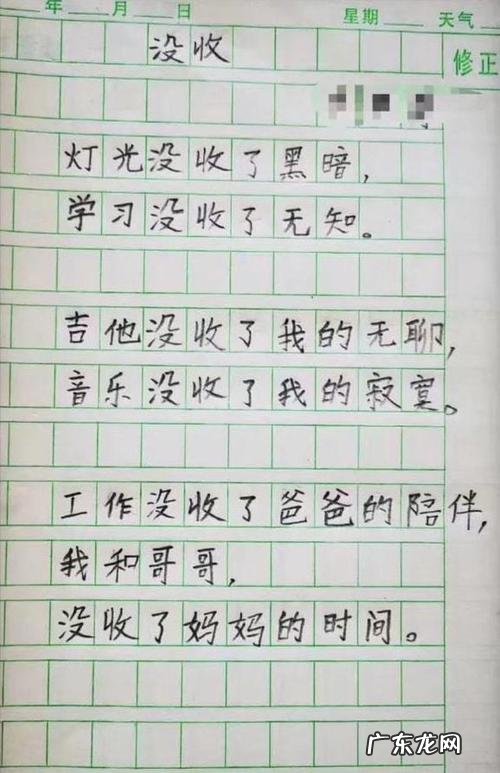 年 月 日 星期 天气
没收
修正
灯光没收了黑暗，
学习没收了无知。
吉他没收了我的无聊，
音乐没收了我的寂寞。
工作没收了爸爸的陪伴，
我和哥哥，
没收了妈妈的时间。
广东龙网